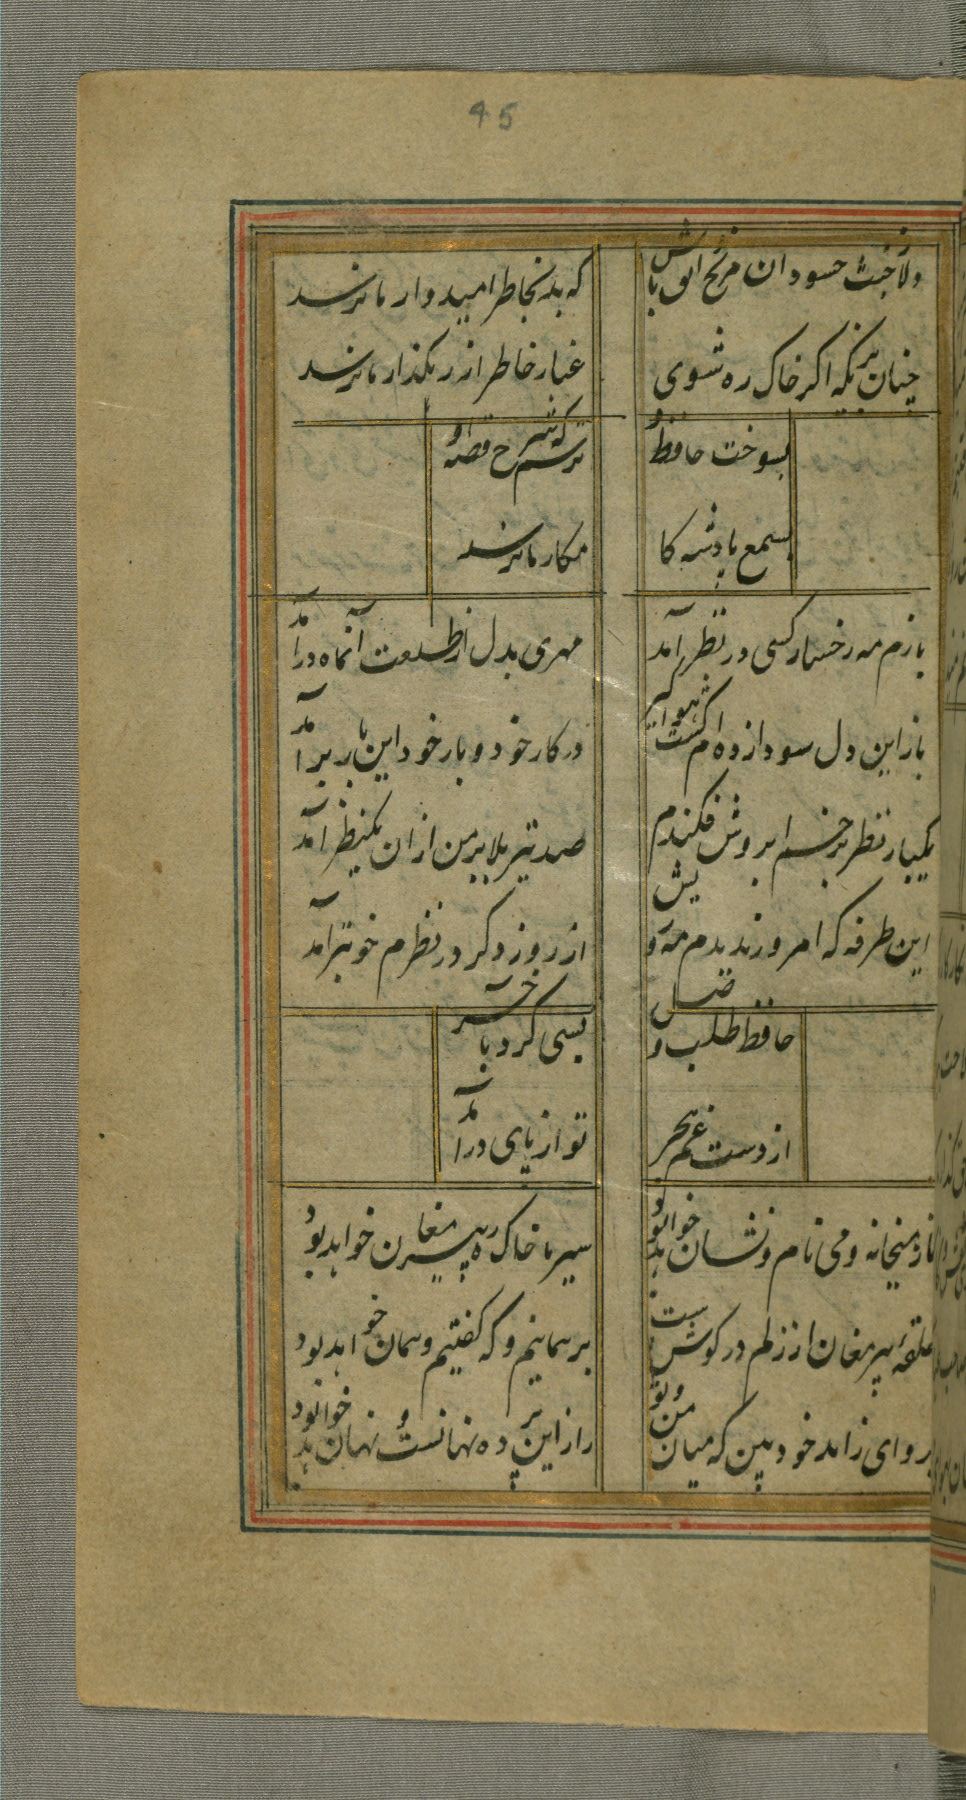 45
دلا ز خبث حسودان مرنج ایق باش
که بد بخاطر امیدوار ما نرسد
چنان بزیکه اکر خاک ره شوی
غبار خاطر از رهکذار ما نرسد
بسوخت حافظ و
ترسم که شرح قصه او
بسمع پادشه کا
مکار ما نرسد
بازم مه رخسار کسی در نظر آمد
مهری بدل از طلعت آنماه درآمد
باز این دل سودازده ام کشت هواکیر
در کار خود و بار خود این بار برآمد
یکبار نظر بر خم ابروش فکندم
صد تیر بلا بر من ازان یکنظر آمد
این طرفه که امروز بدیدم مه رویش
از روز دکر در نظرم خوبتر آمد
حافظ طلب وصل
بسی کرد باخر
از دست غم هجر
تو از پای درآمد
تا ز میخانه و می نام و نشان خواهد بود
سر ما خاک ره پیر مغان خواهد بود
حلقهٔ پیر مغان از ازلم در کوش ست
بر همانیم و که کفتیم و همان خواهد بود
برو ای زاهد خودبین که میان من و تو
راز این پرده نهانست و نهان خواهد بود